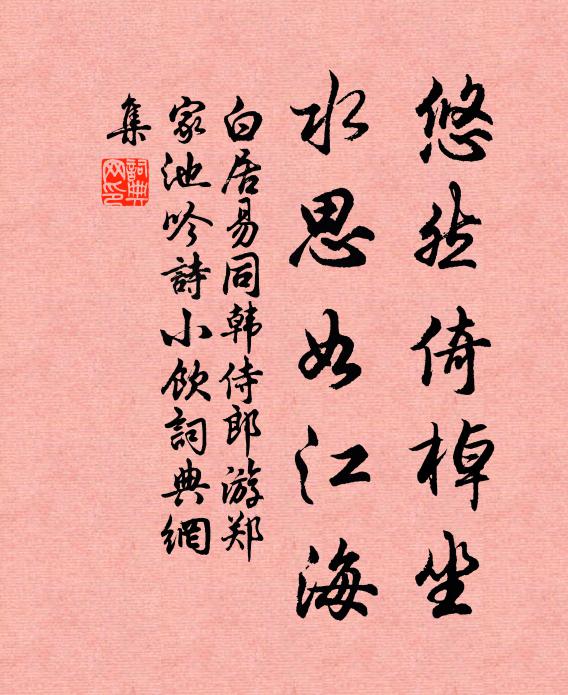 悠然倚棹坐
水思如江海
白居易同韩侍郎游郑
家池吟詩小飲詞典網
集
詞典
网印